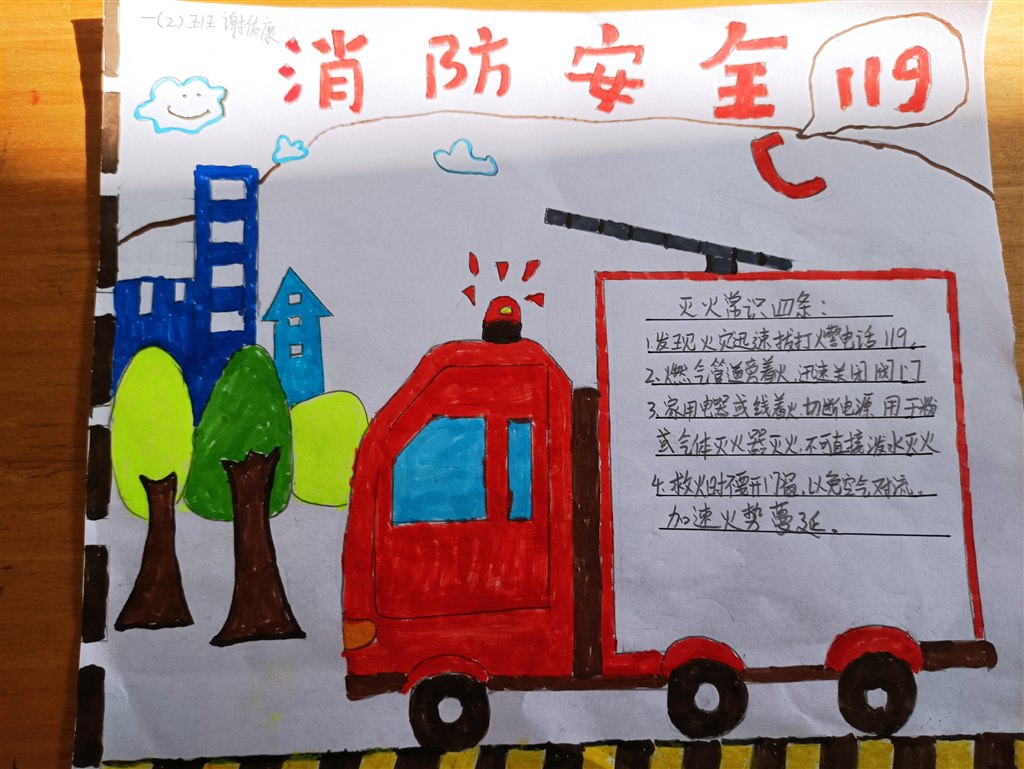 一(2)班 谢佑康
消防安全 119
灭火常识四条:
1.发现火灾迅速拔打火警电话119。
2.燃气管道旁着火,迅速关闭阀门
3.家用电器或线着火,切断电源用干粉
或气体灭火器灭火,不可直接泼水灭火
4.救火时不要开门窗,以免空气对流,
加速火势蔓延。